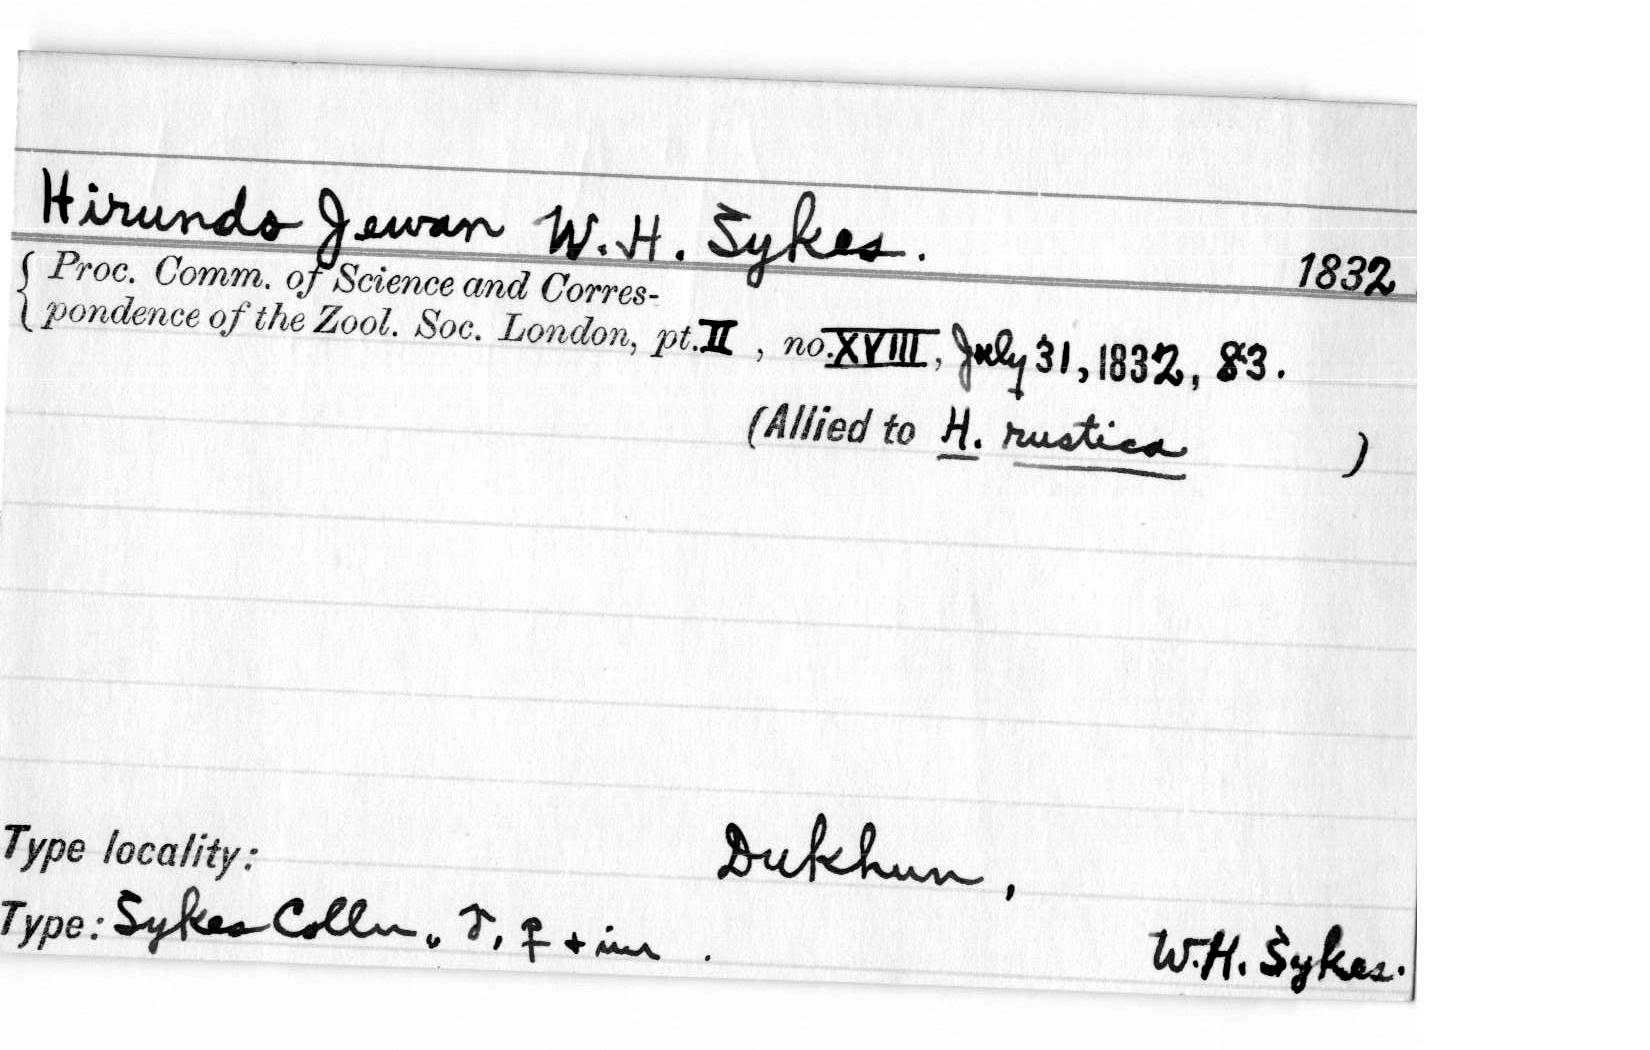 Hirundo Jewan W. H. Sykes.
1832
Proc. Comm. of Science and Corres-
pondence of the Zool. Soc. London, pt. II, no. XVIII, July 31, 1832, 83.
(Allied to H. rustica )
Type locality: Dukhun,
Type: Sykes Colln., ♂, ♀ + im .
W. H. Sykes.